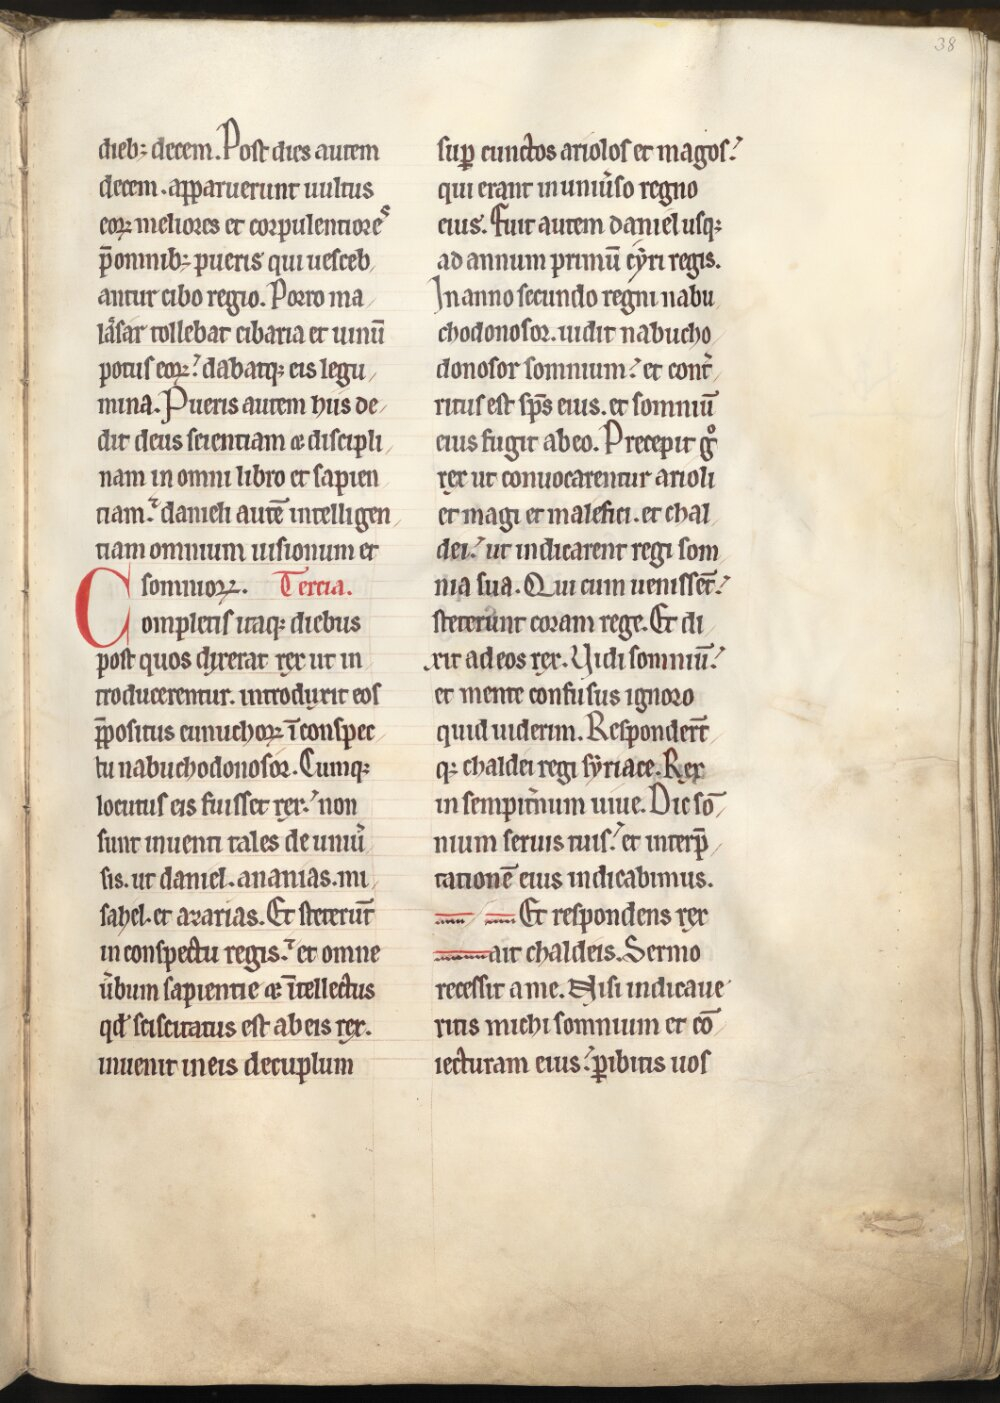 38
dieb; decem. Post dies autem
decem. apparuerunt uultus
eoꝝ meliores et corpulentiores
p̄ omnib; pueris qui uesceb
antur cibo regio. Porro ma
lasar tollebat cibaria et uinū
potus eoꝝ. dabatq; eis legu
mina. Pueris autem hiis de
dit deus scientiam & discipli
nam in omni libro et sapien
tiam. danieli autē intelligen
tiam omnium uisionum et
somnioꝝ. Tercia.
Completis itaq; diebus
post quos dixerat rex ut in
troducerentur. introduxit eos
p̄positus eunuchoꝝ ī conspec
tu nabuchodonosor. Cumq;
locutus eis fuisset rex. non
sunt inuenti tales de uniu̾
sis. ut daniel. ananias. mi
sahel. et azarias. Et steterūt
in conspectu regis. et omne
u̾bum sapientie & ītellectus
qd̄ sciscitatus est ab eis rex.
inuenit in eis decuplum
suꝑ cunctos ariolos et magos.
qui erant in uniu̾so regno
eius. Fuit autem daniel usq;
ad annum primū cyri regis.
In anno secundo regni nabu
chodonosor. uidit nabucho
donosor somnium. et cont̾
ritus est sp̄s eius. et somniū
eius fugit ab eo. Precepit gͦ
rex ut conuocarentur arioli
et magi et malefici. et chal
dei. ut indicarent regi som
nia sua. Qui cum uenissēt.
steterunt coram rege. Et di
xit ad eos rex. Uidi somniū.
et mente confusus ignoro
quid uiderim. Responderūt
q; chaldei regi syriace. Rex
in sempit̾num uiue. Dic sō
nium seruis tuis. et interp̄
tationē eius indicabimus.
Et respondens rex
ait chaldeis. Sermo
recessit a me. Nisi indicaue
ritis michi somnium et cō
iecturam eius. ꝑibitis uos